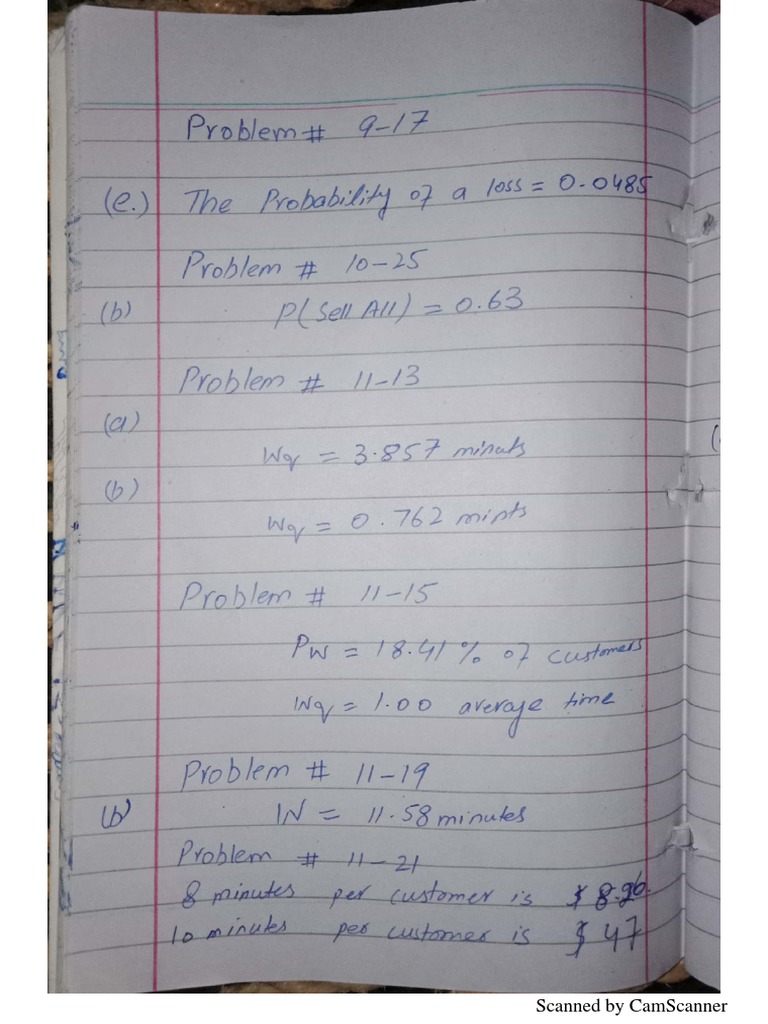 Problem # 9-17
(e.) The Probability of a loss = 0.0485
Problem # 10-25
(b) P(Sell All) = 0.63
Problem # 11-13
(a)
Wq = 3.857 minuts
(b)
Wq = 0.762 mints
Problem # 11-15
Pw = 18.41 % of customers
Wq = 1.00 average time
Problem # 11-19
(b) W = 11.58 minutes
Problem # 11-21
8 minutes per customer is $
10 minutes per customer is $ 47
Scanned by CamScanner